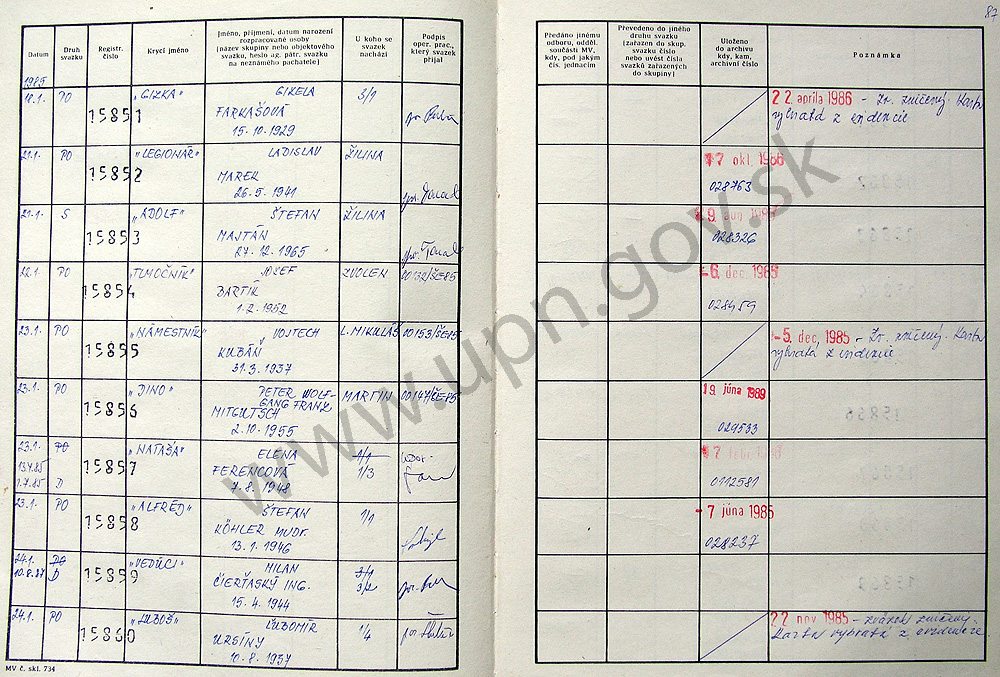 87
Datum
Druh svazku
Registr. číslo
Krycí jméno
Jméno, příjmení, datum narození rozpracované osoby (název skupiny nebo objektového svazku, heslo ag. pátr. svazku na neznámého pachatele)
U koho se svazek nachází
Podpis oper. prac., který svazek přijal
Předáno jinému odboru, odděl. součásti MV, kdy, pod jakým čís. jednacím
Převedeno do jiného druhu svazku (zařazen do skup. svazku číslo nebo uvést čísla svazků zařazených do skupiny)
Uloženo do archivu kdy, kam, archivní číslo
Poznámka
1985
18.1. PO 15851 „GIZKA" GIZELA 3/1
FARKAŠOVÁ
15.10.1929
22. apríla 1986 - Zv. zničený. Karta
vybratá z evidencie
21.1. PO 15852 „LEGIONÁR" LADISLAV ŽILINA
MAREK
26.5.1941
17 okl. 1986
028763
21.1. S 15853 „ADOLF" ŠTEFAN ŽILINA
MAJTÁN
27.12.1965
028326
22.1. PO 15854 „TLMOČNÍK" JOZEF ZVOLEN 00132/ŠE85
BARTÍK
1.2.1952
-6. dec. 1985
028459
23.1. PO 15855 „NÁMESTNÍK" VOJTECH L. MIKULÁŠ 00153/ŠE85
KUBÁŇ
31.3.1937
-5. dec. 1985 - Zv. zničený. Karta
vybratá z evidencie
23.1. PO 15856 „DINO" PETER WOLF-
GANG FRANZ MARTIN 00147/ŠE85
MITGUTSCH
2.10.1955
19. júna 1989
029533
23.1. PO 15857 „NATAŠA" ELENA 1/1
13.4.85 FERENCOVÁ 1/3
1.7.85 D 7.8.1948
0112581
23.1. PO 15858 „ALFRÉD" ŠTEFAN 1/1
KÖHLER MUDr.
13.1.1946
-7 júna 1985
028237
24.1. PO 15859 „VEDÚCI" MILAN 3/1
10.8.87 D ČIERŤASKÝ ING. 3/2
15.4.1944
24.1. PO 15860 „ĽUBOŠ" ĽUBOMÍR 1/4
URSÍNY
10.8.1937
22 nov 1985 - zväzok zničený.
Karta vybratá z evidencie.
MV č. skl. 734
www.upn.gov.sk